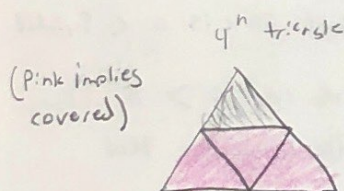 4ⁿ triangle
(Pink implies
covered)